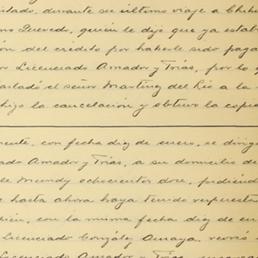 tado, durante su último viaje a Chih
no Quevedo, quien le dijo que ya estab
ón del crédito por haberle sido paga
or Licenciado Amador y Trías, por lo q
asladó el señor Martínez del Río a la
hizo la cancelación y obtuvo la copia
ente, con fecha diez de enero, se dirig
ado Amador y Trías, a su domicilio de
le Mundy ochocientos doce, pidiéndo
e hasta ahora haya tenido respuesta
bién, con la misma fecha diez de en
Licenciado González Amaya, recurrió
Licenciado Amador y Trías